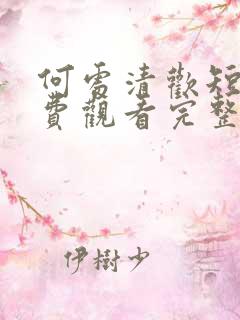 何雪清歡短
費觀看完整
伊樹少